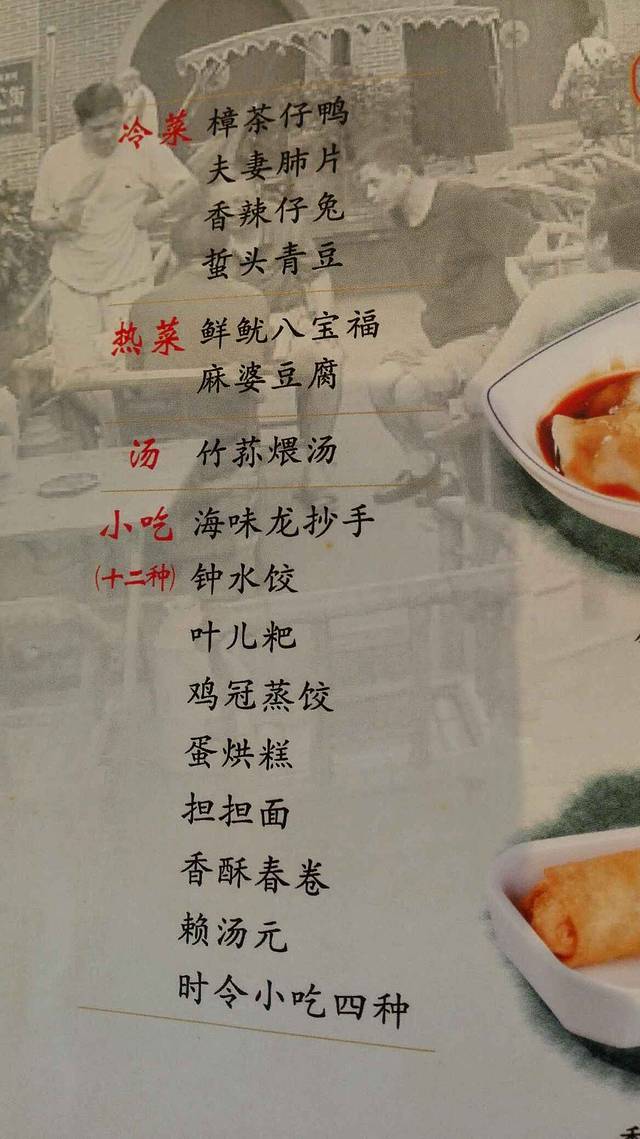 冷菜 樟茶仔鸭
夫妻肺片
香辣仔兔
蜇头青豆
热菜 鲜鱿八宝福
麻婆豆腐
汤 竹荪煨汤
小吃 海味龙抄手
(十二种) 钟水饺
叶儿粑
鸡冠蒸饺
蛋烘糕
担担面
香酥春卷
赖汤元
时令小吃四种